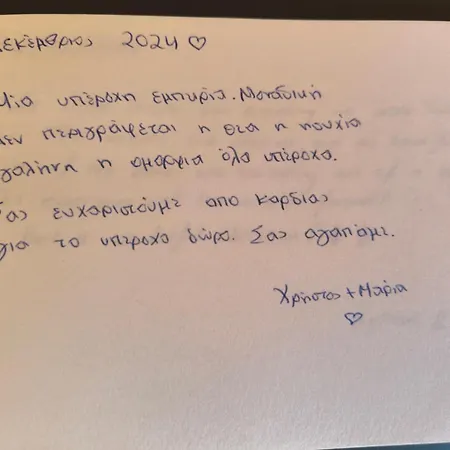 εκέμβριος 2024 ♡
Μία υπέροχη εμπειρία. Μοναδική
εν περιγράφεται η θεα η ησυχία
γαλήνη η ομορφια όλα υπέροχα.
ας ευχαριστούμε απο καρδιας
για το υπεροχο δώρο. Σας αγαπάμε.
Χρήστος + Μαρία
♡